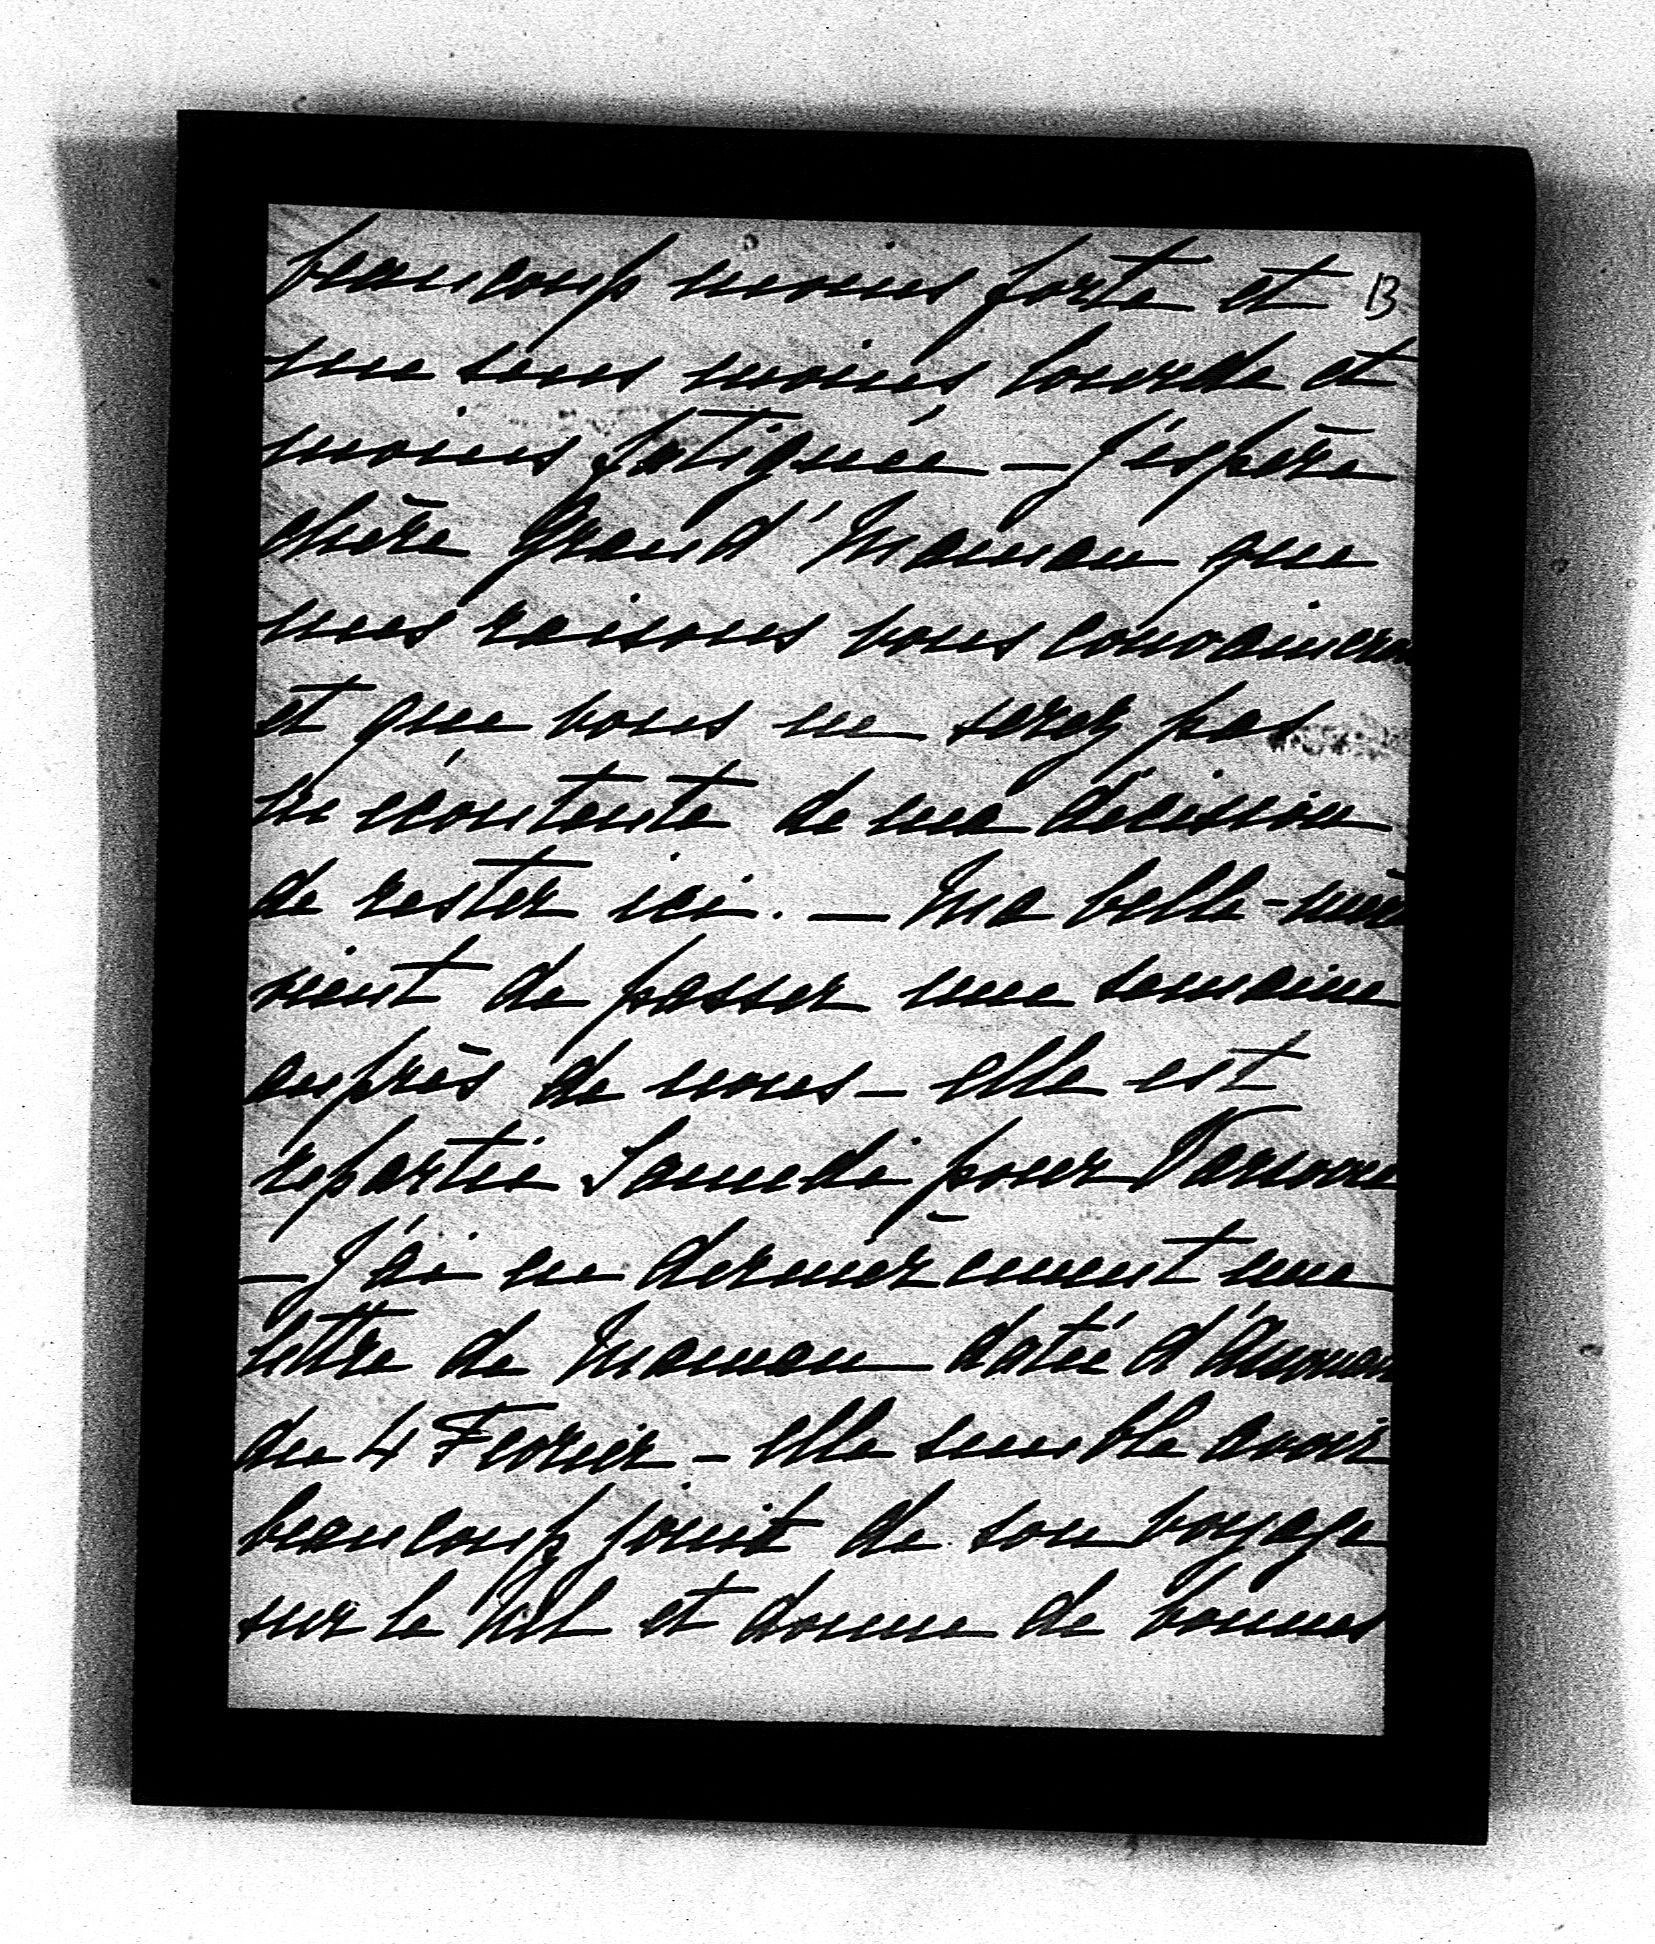 beaucoup moins forte et B
me sens moins lourde et
moins fatiguée — J'espère
chère Grand'Maman que
mes raisons vous convaincron
et que vous ne serez pas
mécontente de ma décision
de rester ici. — Ma belle-mère
vient de passer une semaine
auprès de nous — elle est
repartie Samedi pour Varsovie
— J'ai eu dernièrement une
lettre de Maman datée d'Assouan
du 4 Fevrier — elle semble avoir
beaucoup jouit de son voyage
sur le Nil et donne de bonnes